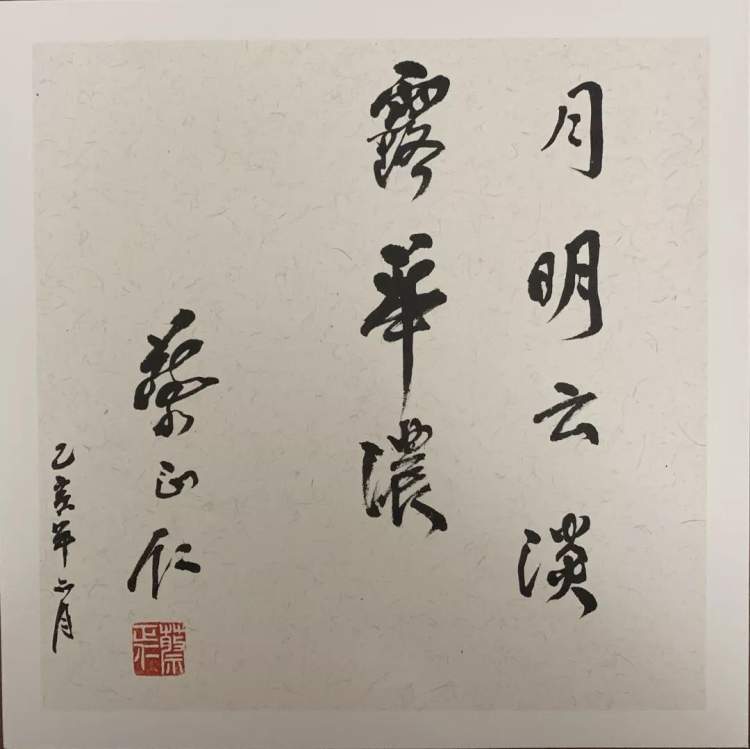 月明云淡
露华浓
蔡正仁
乙亥年六月
蔡正仁